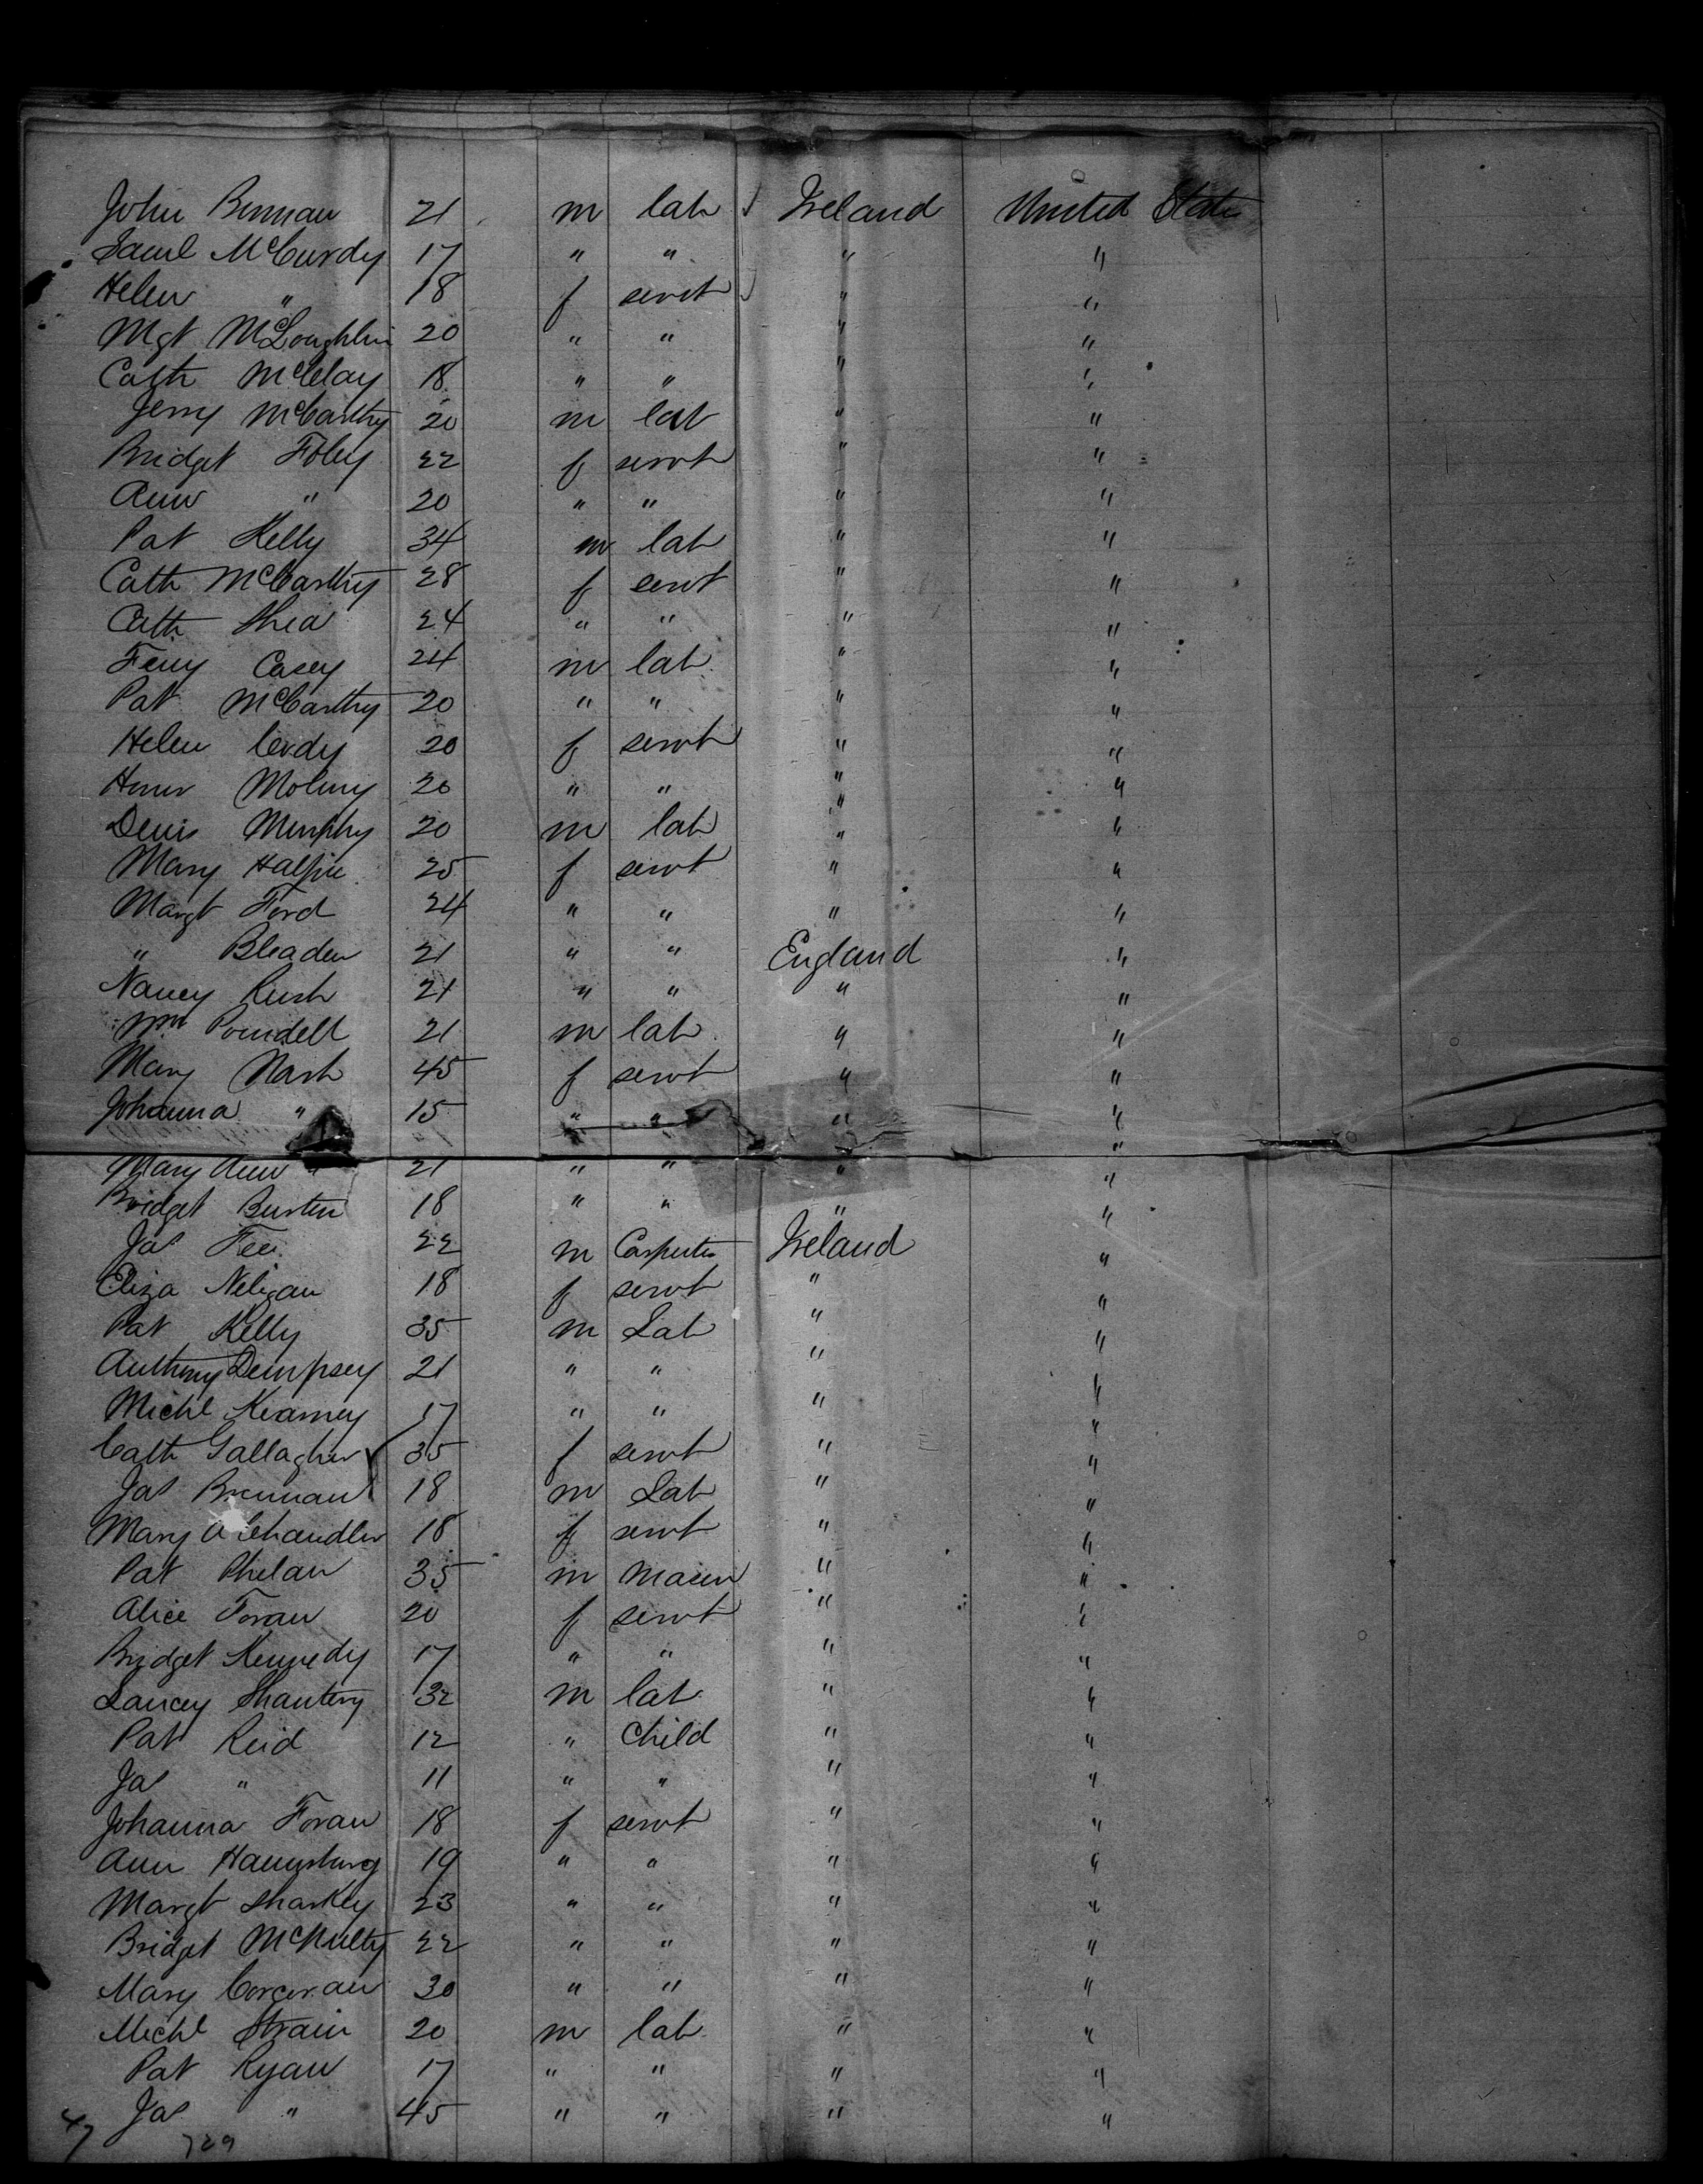 John Brennan 21 m lab Ireland United States
Saml McCurdy 17 " " " "
Helen " 18 f servt " "
Mgt McLoughlin 20 " " " "
Cath McClay 18 " " " "
Jerry McCarthy 20 m lab " "
Bridget Foley 22 f servt " "
Ann " 20 " " " "
Pat Kelly 34 m lab " "
Cath McCarthy 28 f servt " "
Cath Shea 24 " " " "
Casey 24 m lab " "
Pat McCarthy 20 " " " "
Helen 20 f servt " "
20 " " " "
Denis Murphy 20 m lab " "
Mary Halpin 25 f servt " "
Margt Ford 24 " " " "
" Bleaden 21 " " England "
Nancy Rush 21 " " " "
Wm 21 m lab " "
Mary Nash 45 f servt " "
Johanna " 15 " " " "
Mary Ann " 21 " " " "
Bridget 18 " " " "
Jas Fee 22 m Carpenter Ireland "
Eliza Neligan 18 f servt " "
Pat Kelly 35 m Lab " "
Anthony Dempsey 21 " " " "
Michl Kearney 17 " " " "
Cath Gallagher 35 f servt " "
Jas Brennan 18 m Lab " "
Mary A Chandler 18 f servt " "
Pat Phelan 35 m " "
Alice Foran 20 f servt " "
Bridget Kennedy 17 " " " "
32 m lab " "
Pat Reid 12 " Child " "
Jas " 11 " " " "
Johanna Foran 18 f servt " "
Ann 19 " " " "
Margt Sharkey 23 " " " "
Bridget McNulty 22 " " " "
Mary Corcoran 30 " " " "
Michl Strain 20 m lab " "
Pat Ryan 17 " " " "
Jas " 45 " " " "
47 729